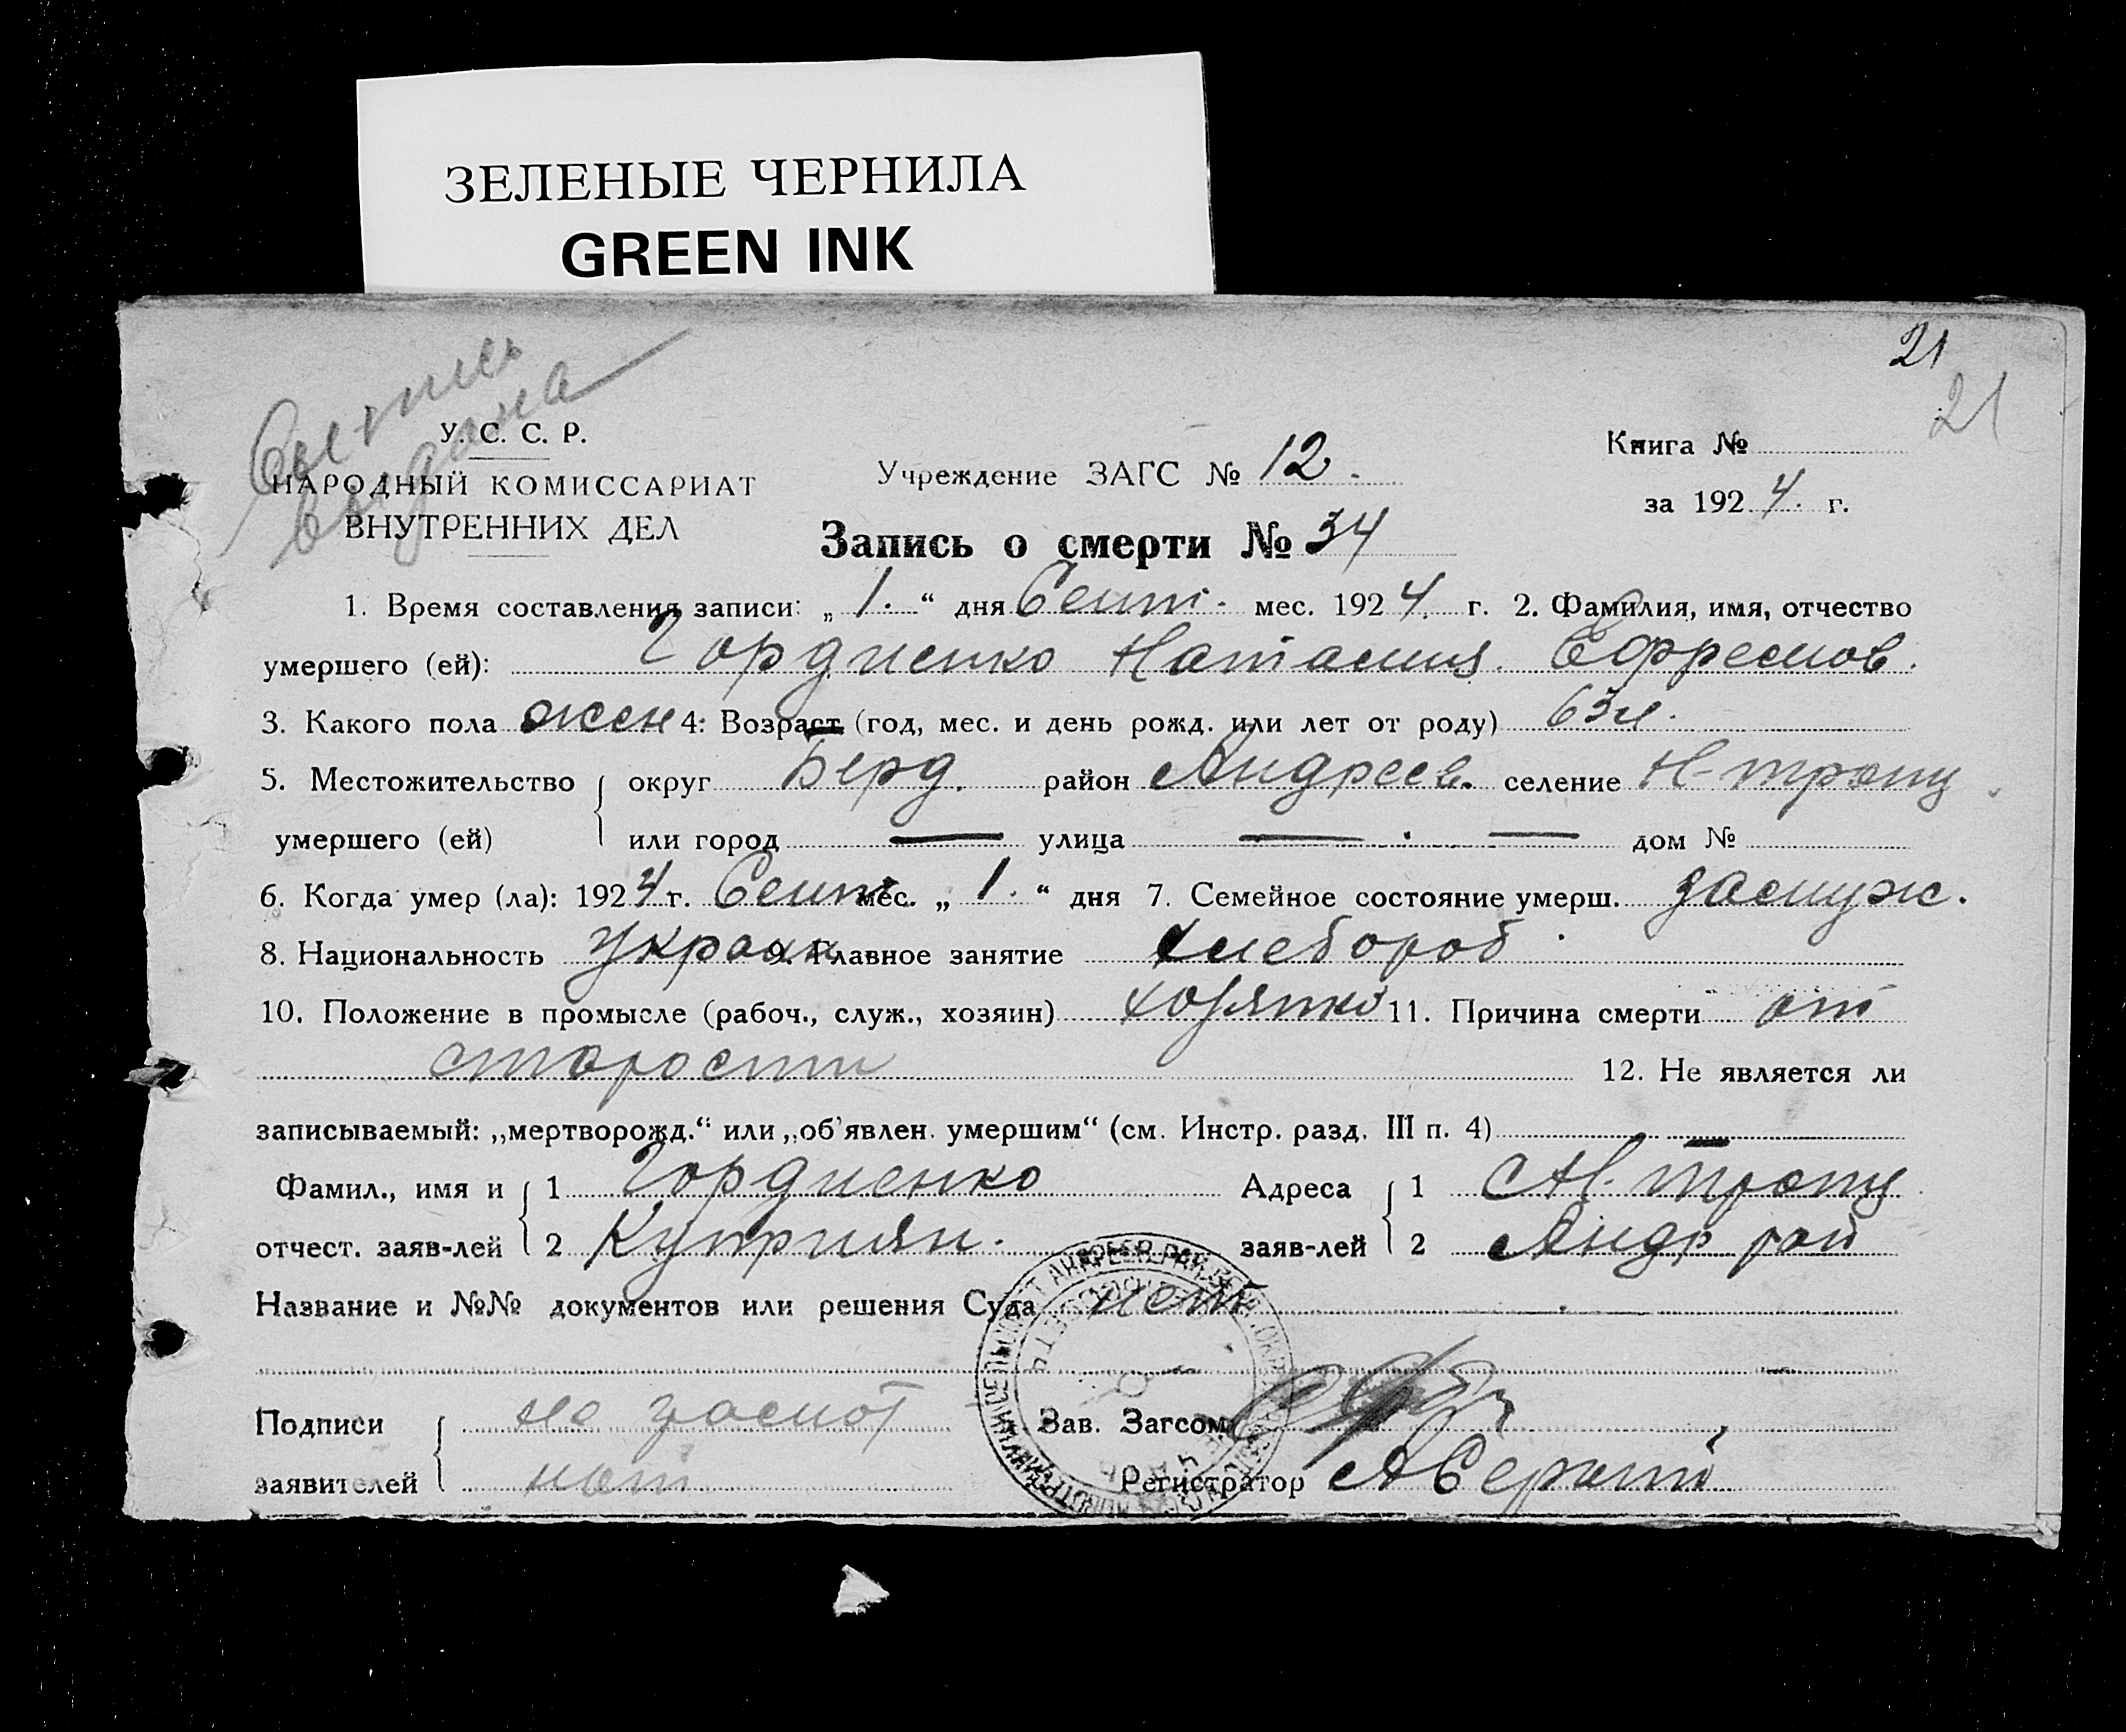 ЗЕЛЕНЫЕ ЧЕРНИЛА
GREEN INK
21
21
выдана
У. С. С. Р.
НАРОДНЫЙ КОМИССАРИАТ
ВНУТРЕННИХ ДЕЛ
Учреждение ЗАГС № 12.
Книга №
за 1924. г.
Запись о смерти № 34
1. Время составления записи: „ 1. “ дня Сент. мес. 1924. г. 2. Фамилия, имя, отчество
умершего (ей): Гордиенко Наталия Ефремов.
3. Какого пола жен 4: Возраст (год, мес. и день рожд. или лет от роду) 63 л.
5. Местожительство округ Берд. район Андреев. селение Н-троиц.
умершего (ей) или город — улица — . — дом №
6. Когда умер (ла): 1924 г. Сент мес. „ 1. “ дня 7. Семейное состояние умерш. замуж.
8. Национальность Украин 9. Главное занятие хлебороб.
10. Положение в промысле (рабоч., служ., хозяин) 11. Причина смерти от
старости 12. Не является ли
записываемый: „мертворожд.“ или „об'явлен. умершим“ (см. Инстр. разд. III п. 4) —
Фамил., имя и 1 Гордиенко Адреса 1 Н. Троиц
отчест. заяв-лей 2 Куприян. заяв-лей 2 Андр рай
Название и №№ документов или решения Суда нет
Подписи не грамот Зав. Загсом
заявителей Регистратор